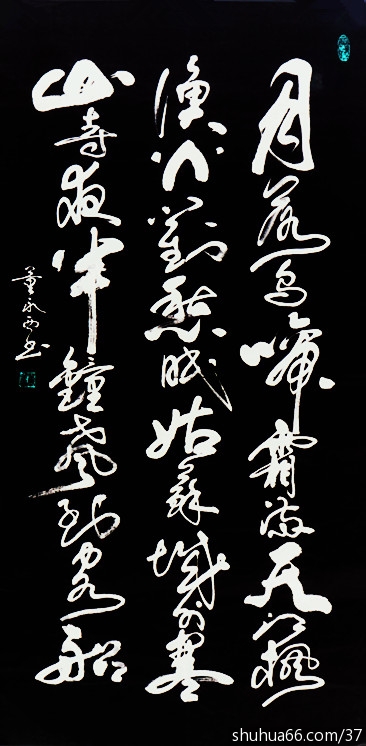 月落烏啼霜滿天江楓
漁火對愁眠姑蘇城外寒
山寺夜半鐘聲到客船
董永西书
shuhua66.com/37